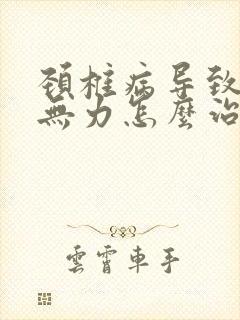 頚椎病导致
無力怎麽治
雲霄車手